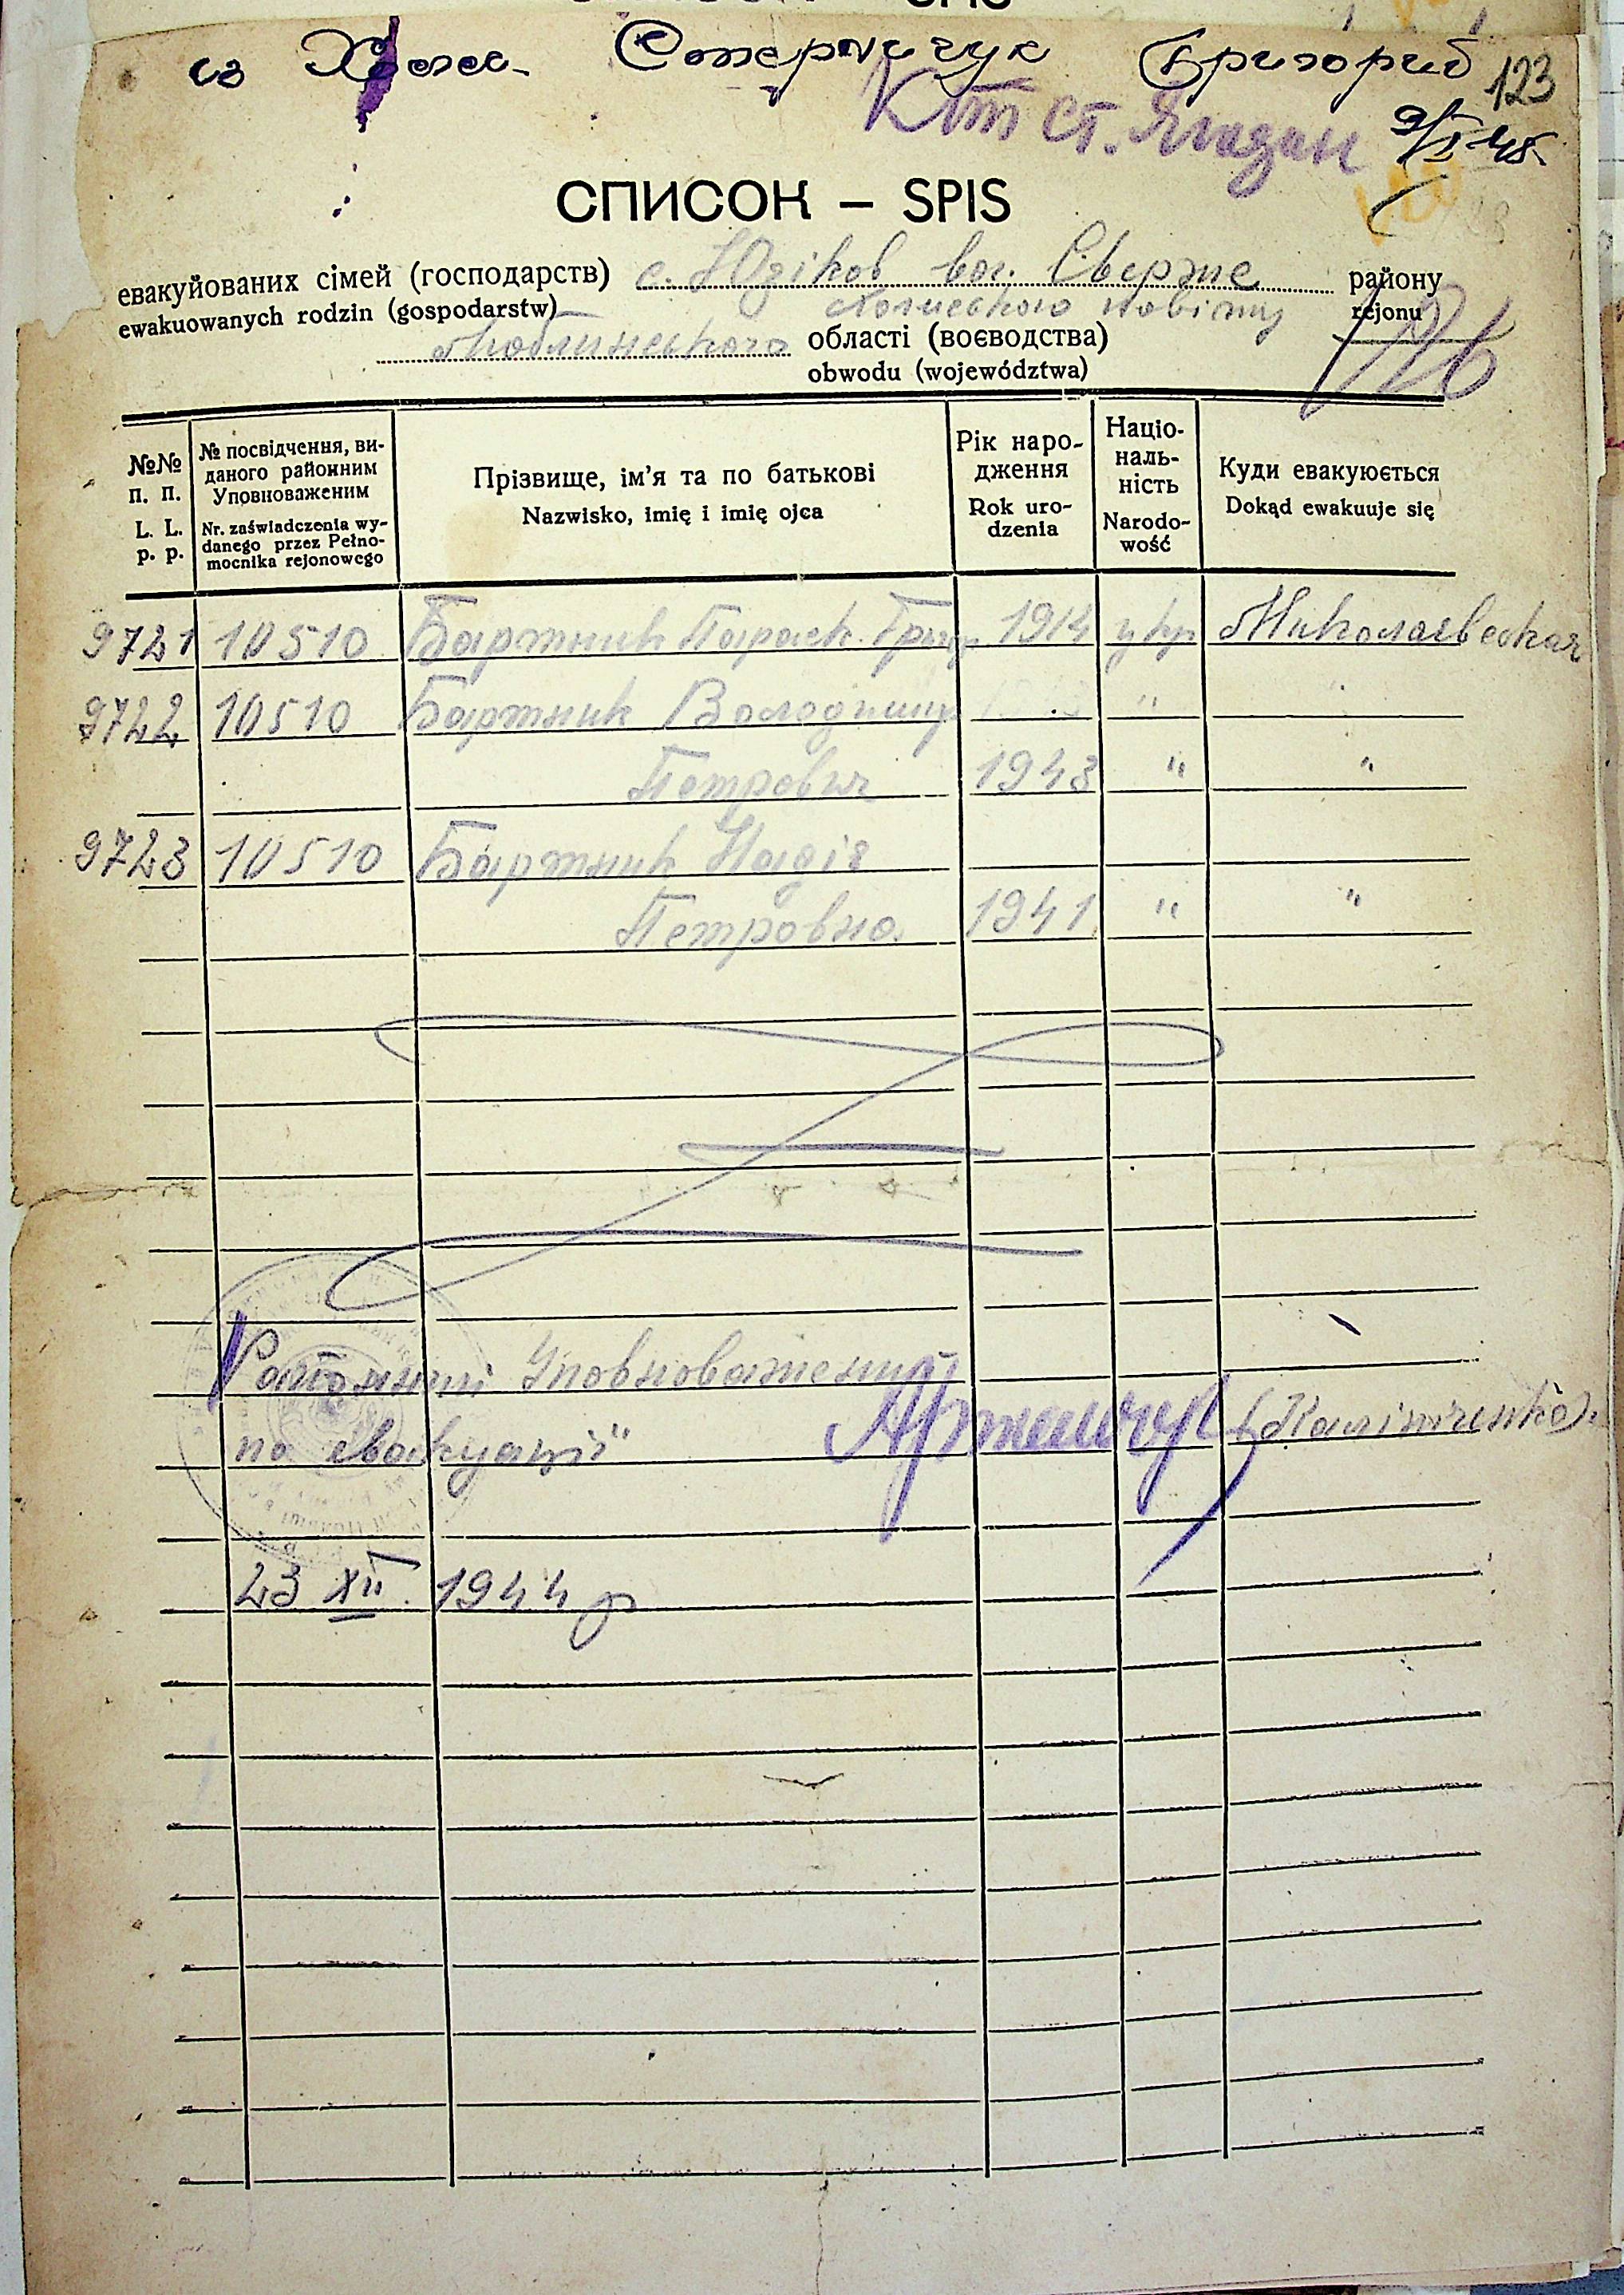 СПИСОК – SPIS
со Хозяс. Григорий 123
Кот ст. Ягодин 9/I-45.
СПИСОК – SPIS
евакуйованих сімей (господарств) с. Юзіков вол. Сверже району
ewakuowanych rodzin (gospodarstw) Холмського повіту rejonu
Люблинського області (воєводства)
obwodu (województwa)
№№ п. п. L. L. p. p. | № посвідчення, виданого районним Уповноваженим Nr. zaświadczenia wydanego przez Pełnomocnika rejonowego | Прізвище, ім'я та по батькові Nazwisko, imię i imię ojca | Рік народження Rok urodzenia | Національність Narodowość | Куди евакуюється Dokąd ewakuuje się
9721 10510 Бартник Параск. Григор 1914 укр Миколаєвская
9722 10510 Бартник Володимир "
Петрович 1943 " "
9723 10510 Бартник Надія
Петровна 1941 " "
Районний Уповноважений
по евакуації (Калініченко).
23 XII. 1944 р